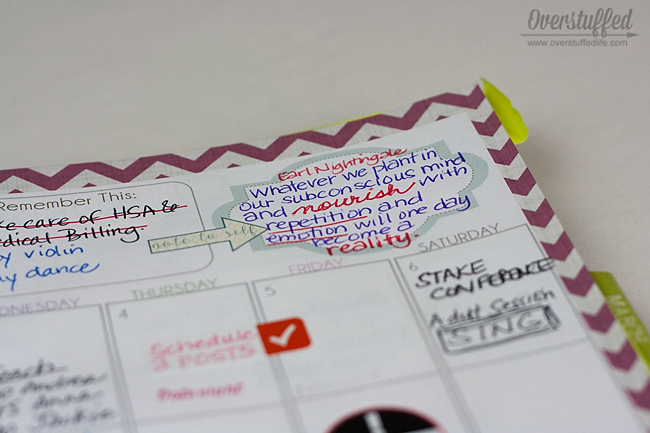 Overstuffed
www.overstuffedlife.com
Earl Nightingale
Whatever we plant in
our subconscious mind
and nourish with
repetition and
emotion will one day
become a
reality.
note to self
Remember This:
care of HSA &
Medical Billing
violin
dance
THURSDAY
FRIDAY
SATURDAY
4
Schedule
3 POSTS
5
6
STAKE
CONFERENCE
Adult Session
SING
MARCH